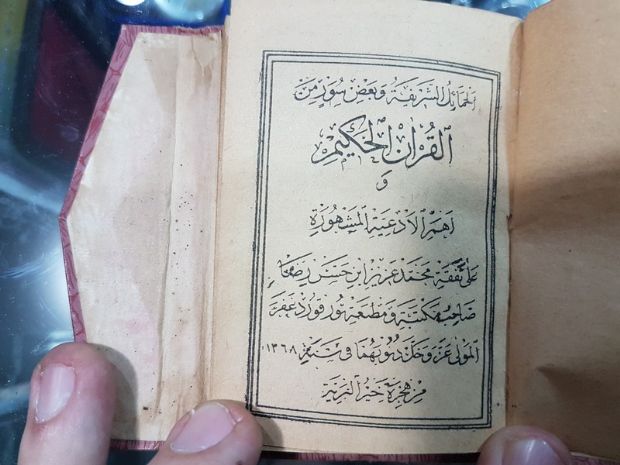 الحمائل الشريفة وبعض سور من
القرآن الحكيم
و
اهم الادعية المشهورة
على نفقة محمد عزيز ابن حسن رضا
صاحب مكتبة ومطبعة نور فورد غفر
المولى عز وجل ذنوبهما في سنة ١٣٦٨
من هجرة خير البرية